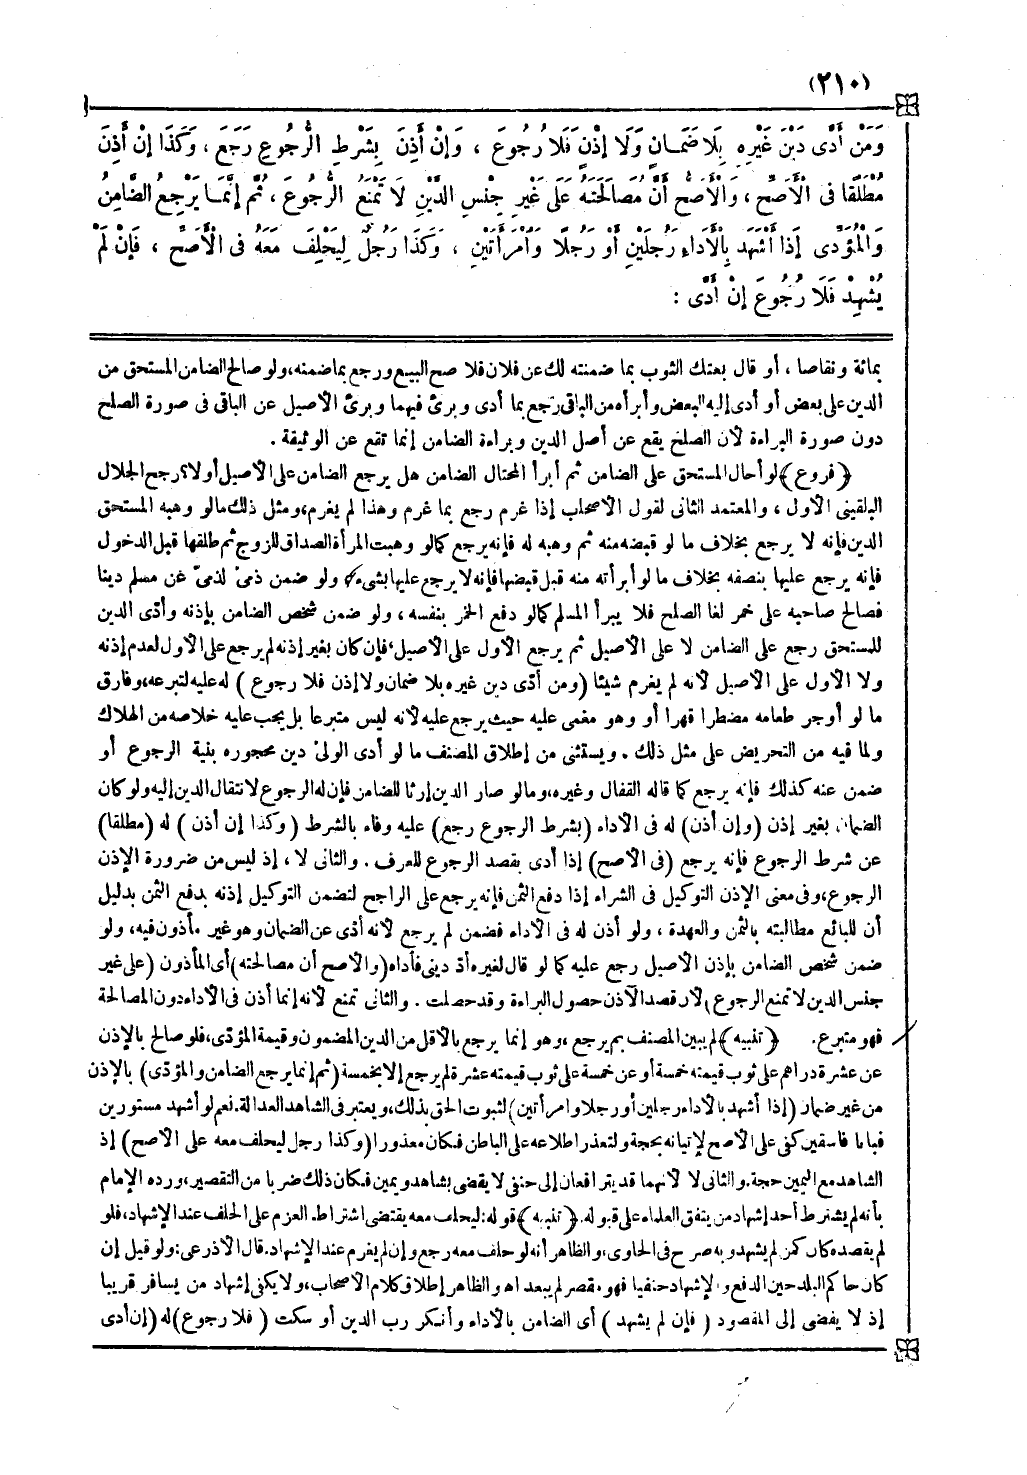 (٢١٠)
وَمَنْ أَدَّى دَيْنَ غَيْرِهِ بِلَا ضَمَانٍ وَلَا إِذْنٍ فَلَا رُجُوعَ ، وَإِنْ أَذِنَ بِشَرْطِ الرُّجُوعِ رَجَعَ ، وَكَذَا إِنْ أَذِنَ
مُطْلَقًا فِى الْأَصَحِّ ، وَالْأَصَحُّ أَنَّ مُصَالَحَتَهُ عَلَى غَيْرِ جِنْسِ الدَّيْنِ لَا تَمْنَعُ الرُّجُوعَ ، ثُمَّ إِنَّمَا يَرْجِعُ الضَّامِنُ
وَالْمُؤَدِّى إِذَا أَشْهَدَ بِالْأَدَاءِ رَجُلَيْنِ أَوْ رَجُلًا وَامْرَأَتَيْنِ ، وَكَذَا رَجُلٌ لِيَحْلِفَ مَعَهُ فِى الْأَصَحِّ ، فَإِنْ لَمْ
يُشْهِدْ فَلَا رُجُوعَ إِنْ أَدَّى :
بمائة وتقاصا ، أو قال بعتك الثوب بما ضمنته لك عن فلان فلا صح البيع ورجع بما ضمنه ، ولو صالح الضامن المستحق من
الدين على بعض أو أدى إليه البعض وأبرأه من الباقى رجع بما أدى وبرئ فيهما وبرئ الأصيل عن الباقى فى صورة الصلح
دون صورة البراءة لأن الصلح يقع عن أصل الدين وبراءة الضامن إنما تقع عن الوثيقة .
﴿ فروع ﴾ لو أحال المستحق على الضامن ثم أبرأ المحتال الضامن هل يرجع الضامن على الأصيل أولا ؟ رجح الجلال
البلقينى الأول ، والمعتمد الثانى لقول الأصحاب إذا غرم رجع بما غرم وهذا لم يغرم ، ومثل ذلك ما لو وهبه المستحق
الدين فإنه لا يرجع بخلاف ما لو قبضه منه ثم وهبه له فإنه يرجع كما لو وهبت المرأة الصداق للزوج ثم طلقها قبل الدخول
فإنه يرجع عليها بنصفه بخلاف ما لو أبرأته منه قبل قبضها فإنه لا يرجع عليها بشىء ، ولو ضمن ذمىّ لذمىّ عن مسلم دينا
فصالح صاحبه على خمر لغا الصلح فلا يبرأ المسلم كما لو دفع الخمر بنفسه ، ولو ضمن شخص الضامن بإذنه وأدّى الدين
للمستحق رجع على الضامن لا على الأصيل ثم يرجع الأول على الأصيل ، فإن كان بغير إذنه لم يرجع على الأول لعدم إذنه
ولا الأول على الأصيل لأنه لم يغرم شيئا ( ومن أدّى دين غيره بلا ضمان ولا إذن فلا رجوع ) له عليه لتبرعه ، وفارق
ما لو أوجر طعامه مضطرا قهرا أو وهو مغمى عليه حيث يرجع عليه لأنه ليس متبرعا بل يجب عليه خلاصه من الهلاك
ولما فيه من التحريض على مثل ذلك . ويستثنى من إطلاق المصنف ما لو أدى الولىّ دين محجوره بنية الرجوع أو
ضمن عنه كذلك فإنه يرجع كما قاله القفال وغيره ، وما لو صار الدين إرثا للضامن فإن له الرجوع لانتقال الدين إليه ولو كان
الضمان بغير إذن ( وإن أذن ) له فى الأداء ( بشرط الرجوع رجع ) عليه وفاء بالشرط ( وكذا إن أذن ) له ( مطلقا )
عن شرط الرجوع فإنه يرجع ( فى الأصح ) إذا أدى بقصد الرجوع للعرف . والثانى لا ، إذ ليس من ضرورة الإذن
الرجوع ، وفى معنى الإذن التوكيل فى الشراء إذا دفع الثمن فإنه يرجع على الراجح لتضمن التوكيل إذنه بدفع الثمن بدليل
أن للبائع مطالبته بالثمن والعهدة ، ولو أذن له فى الأداء فضمن لم يرجع لأنه أدّى عن الضمان وهو غير مأذون فيه ، ولو
ضمن شخص الضامن بإذن الأصيل رجع عليه كما لو قال لغيره أدّ دينى فأداه ( والأصح أن مصالحته ) أى المأذون ( على غير
جنس الدين لا تمنع الرجوع ) لأن قصد الآذن حصول البراءة وقد حصلت . والثانى تمنع لأنه إنما أذن فى الأداء دون المصالحة
فهو متبرع . ﴿ تنبيه ﴾ لم يبين المصنف بم يرجع ، وهو إنما يرجع بالأقل من الدين المضمون وقيمة المؤدّى ، فلو صالح بالإذن
عن عشرة دراهم على ثوب قيمته خمسة أو عن خمسة على ثوب قيمته عشرة لم يرجع إلا بخمسة ( ثم إنما يرجع الضامن والمؤدّى ) بالإذن
من غير ضمان ( إذا أشهد بالأداء رجلين أو رجلا وامرأتين ) لثبوت الحق بذلك ، ويعتبر فى الشاهد العدالة . نعم لو أشهد مستورين
فبانا فاسقين كفى على الأصح لإتيانه بحجة ولتعذر اطلاعه على الباطن فكان معذورا ( وكذا رجل ليحلف معه على الأصح ) إذ
الشاهد مع اليمين حجة . والثانى لا لأنهما قد يترافعان إلى حنفى لا يقضى بشاهد ويمين فكان ذلك ضربا من التقصير ، ورده الإمام
بأنه لم يشترط أحد إشهاد من يتفق العلماء على قبوله . ﴿ تنبيه ﴾ قوله : ليحلف معه يقتضى اشتراط العزم على الحلف عند الإشهاد ، فلو
لم يقصده كان كمن لم يشهد وبه صرح فى الحاوى ، والظاهر أنه لو حلف معه رجع وإن لم يعزم عند الإشهاد . قال الأذرعى : ولو قيل إن
كان حاكم البلد حين الدفع والإشهاد حنفيا فهو مقصر لم يبعد اه والظاهر إطلاق كلام الأصحاب ، ولا يكفى إشهاد من يسافر قريبا
إذ لا يفضى إلى المقصود ( فإن لم يشهد ) أى الضامن بالأداء وأنكر رب الدين أو سكت ( فلا رجوع ) له ( إن أدى